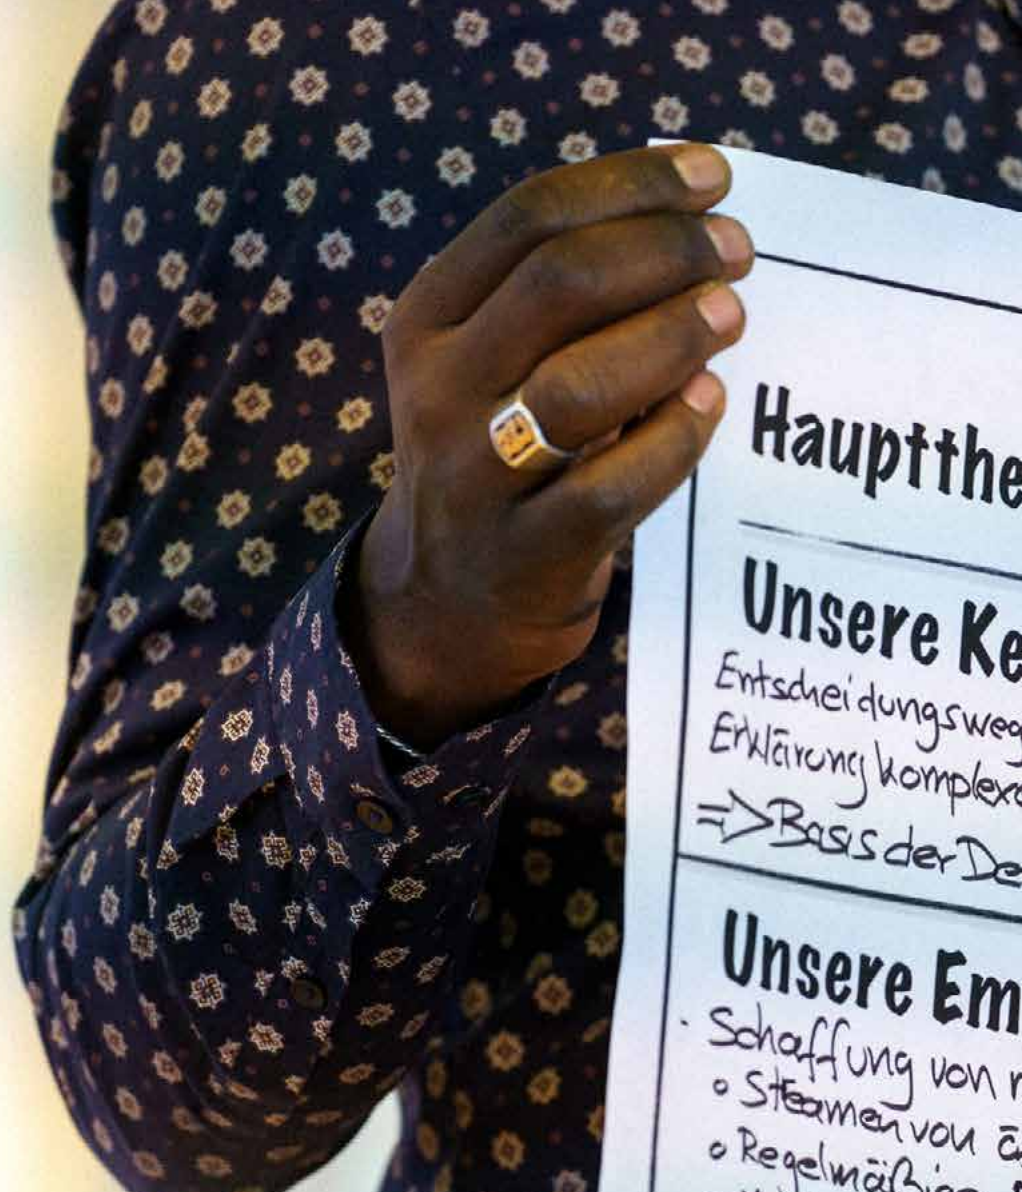 Hauptthe
Unsere Ke
Entscheidungsweg
Erklärung komplexe
=> Basis der De
Unsere Em
· Schaffung von r
o Steamen von ä
o Regelmäßige